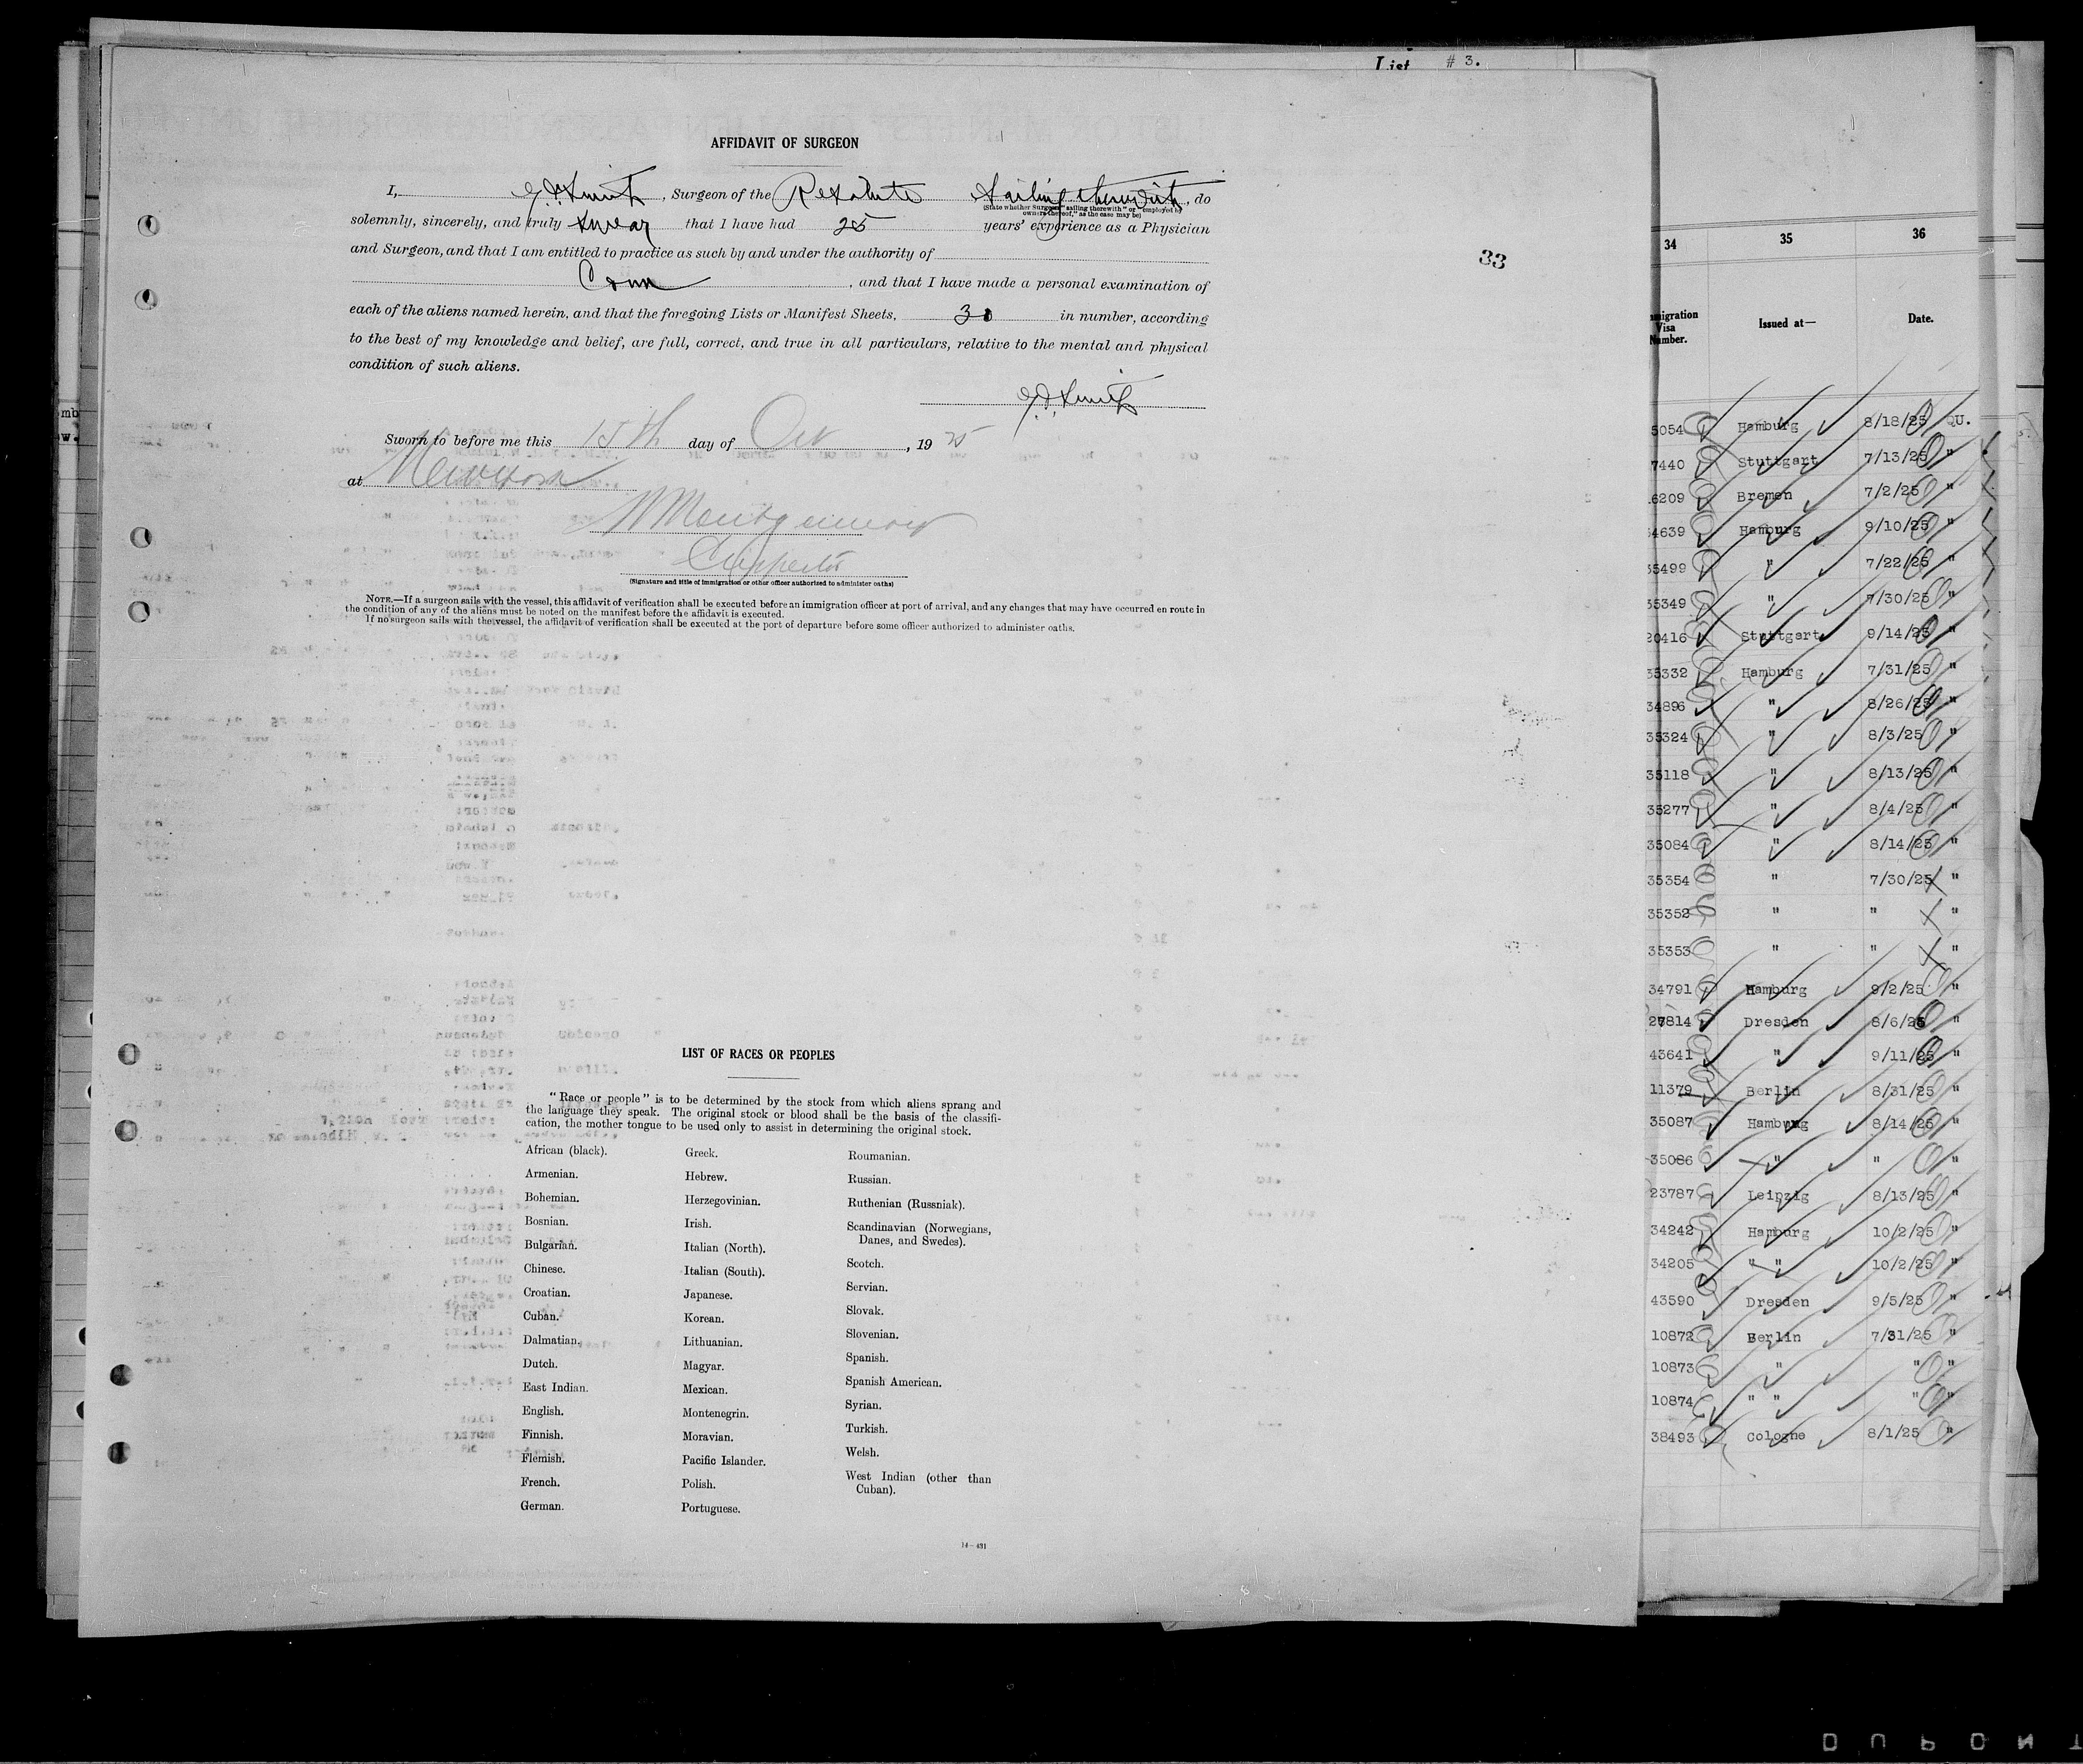 List # 3.
AFFIDAVIT OF SURGEON
I, Smith, Surgeon of the Resolute Sailing therewith, do
(State whether Surgeon "sailing therewith" or "employed by
owners thereof," as the case may be)
solemnly, sincerely, and truly swear that I have had 25 years' experience as a Physician
and Surgeon, and that I am entitled to practice as such by and under the authority of
Conn, and that I have made a personal examination of
each of the aliens named herein, and that the foregoing Lists or Manifest Sheets, in number, according
to the best of my knowledge and belief, are full, correct, and true in all particulars, relative to the mental and physical
condition of such aliens.
Smith
Sworn to before me this 15th day of Oct, 1925
at New York
Montgomery
Inspector
(Signature and title of immigration or other officer authorized to administer oaths)
NOTE.—If a surgeon sails with the vessel, this affidavit of verification shall be executed before an immigration officer at port of arrival, and any changes that may have occurred en route in
the condition of any of the aliens must be noted on the manifest before the affidavit is executed.
If no surgeon sails with the vessel, the affidavit of verification shall be executed at the port of departure before some officer authorized to administer oaths.
33
LIST OF RACES OR PEOPLES
"Race or people" is to be determined by the stock from which aliens sprang and
the language they speak. The original stock or blood shall be the basis of the classifi-
cation, the mother tongue to be used only to assist in determining the original stock.
African (black).
Armenian.
Bohemian.
Bosnian.
Bulgarian.
Chinese.
Croatian.
Cuban.
Dalmatian.
Dutch.
East Indian.
English.
Finnish.
Flemish.
French.
German.
Greek.
Hebrew.
Herzegovinian.
Irish.
Italian (North).
Italian (South).
Japanese.
Korean.
Lithuanian.
Magyar.
Mexican.
Montenegrin.
Moravian.
Pacific Islander.
Polish.
Portuguese.
Roumanian.
Russian.
Ruthenian (Russniak).
Scandinavian (Norwegians,
Danes, and Swedes).
Scotch.
Servian.
Slovak.
Slovenian.
Spanish.
Spanish American.
Syrian.
Turkish.
Welsh.
West Indian (other than
Cuban).
14—431
34 35 36
migration
Visa
Number.
Issued at—
Date.
5054 Hamburg 8/18/25 QU.
7440 Stuttgart 7/13/25 "
6209 Bremen 7/2/25 "
4639 Hamburg 9/10/25 "
35499 " 7/22/25 "
35349 " 7/30/25 "
20416 Stuttgart 9/14/25 "
35332 Hamburg 7/31/25 "
34896 " 8/26/25 "
35324 " 8/3/25 "
35118 " 8/13/25 "
35277 " 8/4/25 "
35084 " 8/14/25 "
35354 " 7/30/25 "
35352 " " "
35353 " " "
34791 Hamburg 9/2/25 "
27814 Dresden 8/6/25 "
43641 " 9/11/25 "
11379 Berlin 8/31/25 "
35087 Hamburg 8/14/25 "
35086 " " "
23787 Leipzig 8/13/25 "
34242 Hamburg 10/2/25 "
34205 " " 10/2/25 "
43590 Dresden 9/5/25 "
10872 Berlin 7/31/25 "
10873 " " "
10874 " " " "
38493 Cologne 8/1/25 "
DUPONT